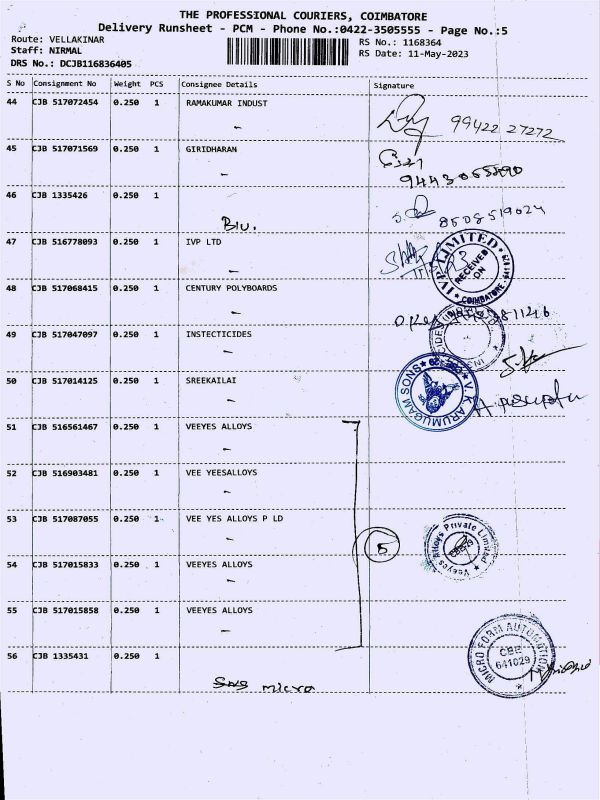 THE PROFESSIONAL COURIERS, COIMBATORE
Delivery Runsheet - PCM - Phone No.:0422-3505555 - Page No.:5
Route: VELLAKINAR
RS No.: 1168364
Staff: NIRMAL
RS Date: 11-May-2023
DRS No.: DCJB116836405
S No Consignment No Weight PCS Consignee Details Signature
44 CJB 517072454 0.250 1 RAMAKUMAR INDUST
99422 27272
45 CJB 517071569 0.250 1 GIRIDHARAN
46 CJB 1335426 0.250 1
8508519024
47 CJB 516778093 0.250 1 IVP LTD
IVP LIMITED
RECEIVED ON
COIMBATORE
48 CJB 517068415 0.250 1 CENTURY POLYBOARDS
49 CJB 517047097 0.250 1 INSTECTICIDES
50 CJB 517014125 0.250 1 SREEKAILAI
V.K. ARUMUGAM SONS
51 CJB 516561467 0.250 1 VEEYES ALLOYS
52 CJB 516903481 0.250 1 VEE YEESALLOYS
53 CJB 517087055 0.250 1 VEE YES ALLOYS P LD
5
Veeyes Alloys Private Limited
54 CJB 517015833 0.250 1 VEEYES ALLOYS
55 CJB 517015858 0.250 1 VEEYES ALLOYS
56 CJB 1335431 0.250 1
MICRO FORM AUTOMATION
CBE
641029
micro